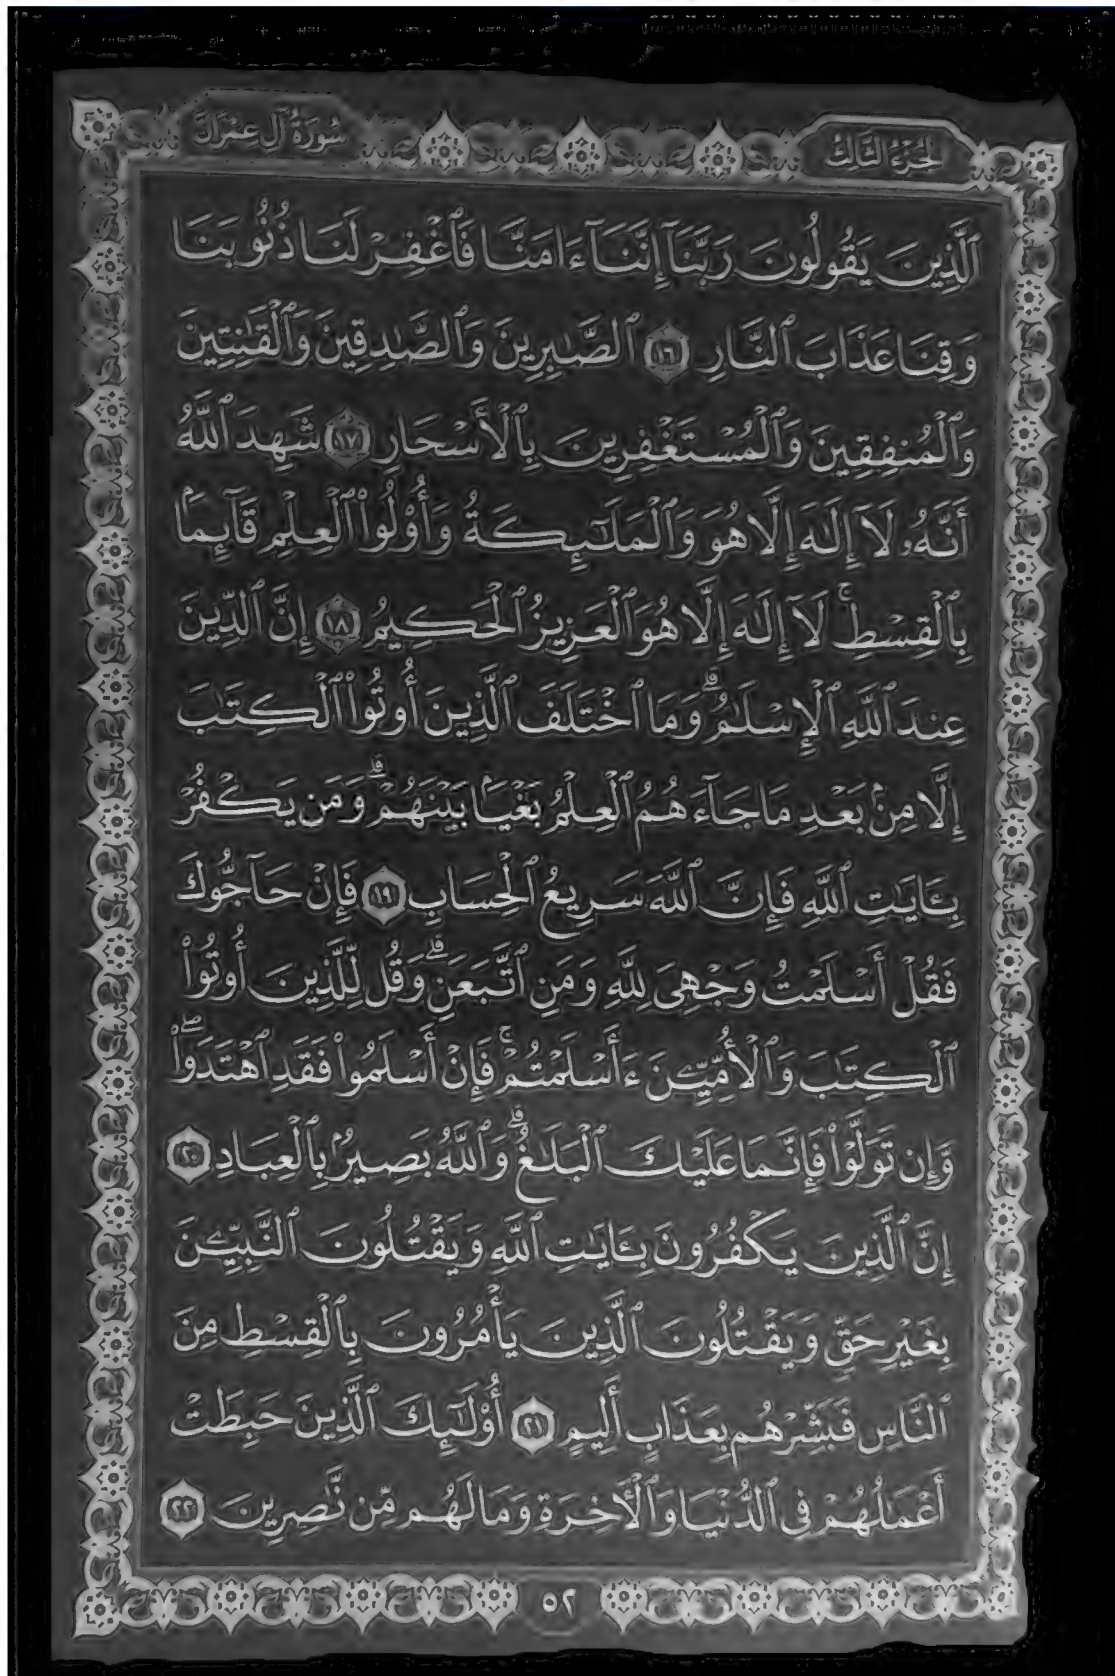 الجزء الثالث
سورة آل عمران
ٱلَّذِينَ يَقُولُونَ رَبَّنَآ إِنَّنَآ ءَامَنَّا فَٱغْفِرْ لَنَا ذُنُوبَنَا
وَقِنَا عَذَابَ ٱلنَّارِ ١٦ ٱلصَّٰبِرِينَ وَٱلصَّٰدِقِينَ وَٱلْقَٰنِتِينَ
وَٱلْمُنفِقِينَ وَٱلْمُسْتَغْفِرِينَ بِٱلْأَسْحَارِ ١٧ شَهِدَ ٱللَّهُ
أَنَّهُۥ لَآ إِلَٰهَ إِلَّا هُوَ وَٱلْمَلَٰٓئِكَةُ وَأُو۟لُوا۟ ٱلْعِلْمِ قَآئِمًۢا
بِٱلْقِسْطِ ۚ لَآ إِلَٰهَ إِلَّا هُوَ ٱلْعَزِيزُ ٱلْحَكِيمُ ١٨ إِنَّ ٱلدِّينَ
عِندَ ٱللَّهِ ٱلْإِسْلَٰمُ ۗ وَمَا ٱخْتَلَفَ ٱلَّذِينَ أُوتُوا۟ ٱلْكِتَٰبَ
إِلَّا مِنۢ بَعْدِ مَا جَآءَهُمُ ٱلْعِلْمُ بَغْيًۢا بَيْنَهُمْ ۗ وَمَن يَكْفُرْ
بِـَٔايَٰتِ ٱللَّهِ فَإِنَّ ٱللَّهَ سَرِيعُ ٱلْحِسَابِ ١٩ فَإِنْ حَآجُّوكَ
فَقُلْ أَسْلَمْتُ وَجْهِىَ لِلَّهِ وَمَنِ ٱتَّبَعَنِ ۗ وَقُل لِّلَّذِينَ أُوتُوا۟
ٱلْكِتَٰبَ وَٱلْأُمِّيِّـۧنَ ءَأَسْلَمْتُمْ ۚ فَإِنْ أَسْلَمُوا۟ فَقَدِ ٱهْتَدَوا۟ ۖ
وَّإِن تَوَلَّوْا۟ فَإِنَّمَا عَلَيْكَ ٱلْبَلَٰغُ ۗ وَٱللَّهُ بَصِيرٌۢ بِٱلْعِبَادِ ٢٠
إِنَّ ٱلَّذِينَ يَكْفُرُونَ بِـَٔايَٰتِ ٱللَّهِ وَيَقْتُلُونَ ٱلنَّبِيِّـۧنَ
بِغَيْرِ حَقٍّ وَيَقْتُلُونَ ٱلَّذِينَ يَأْمُرُونَ بِٱلْقِسْطِ مِنَ
ٱلنَّاسِ فَبَشِّرْهُم بِعَذَابٍ أَلِيمٍ ٢١ أُو۟لَٰٓئِكَ ٱلَّذِينَ حَبِطَتْ
أَعْمَٰلُهُمْ فِى ٱلدُّنْيَا وَٱلْـَٔاخِرَةِ وَمَا لَهُم مِّن نَّٰصِرِينَ ٢٢
٥٢